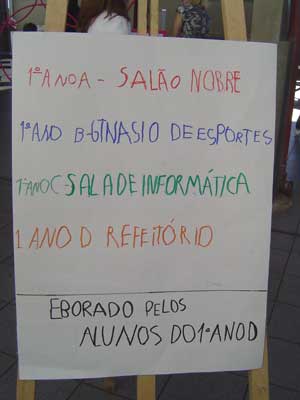 1º ANO A - SALÃO NOBRE
1º ANO B - GINASIO DE ESPORTES
1º ANO C - SALA DE INFORMÁTICA
1 ANO D REFEITÓRIO
EBORADO PELOS
ALUNOS DO 1º ANO D